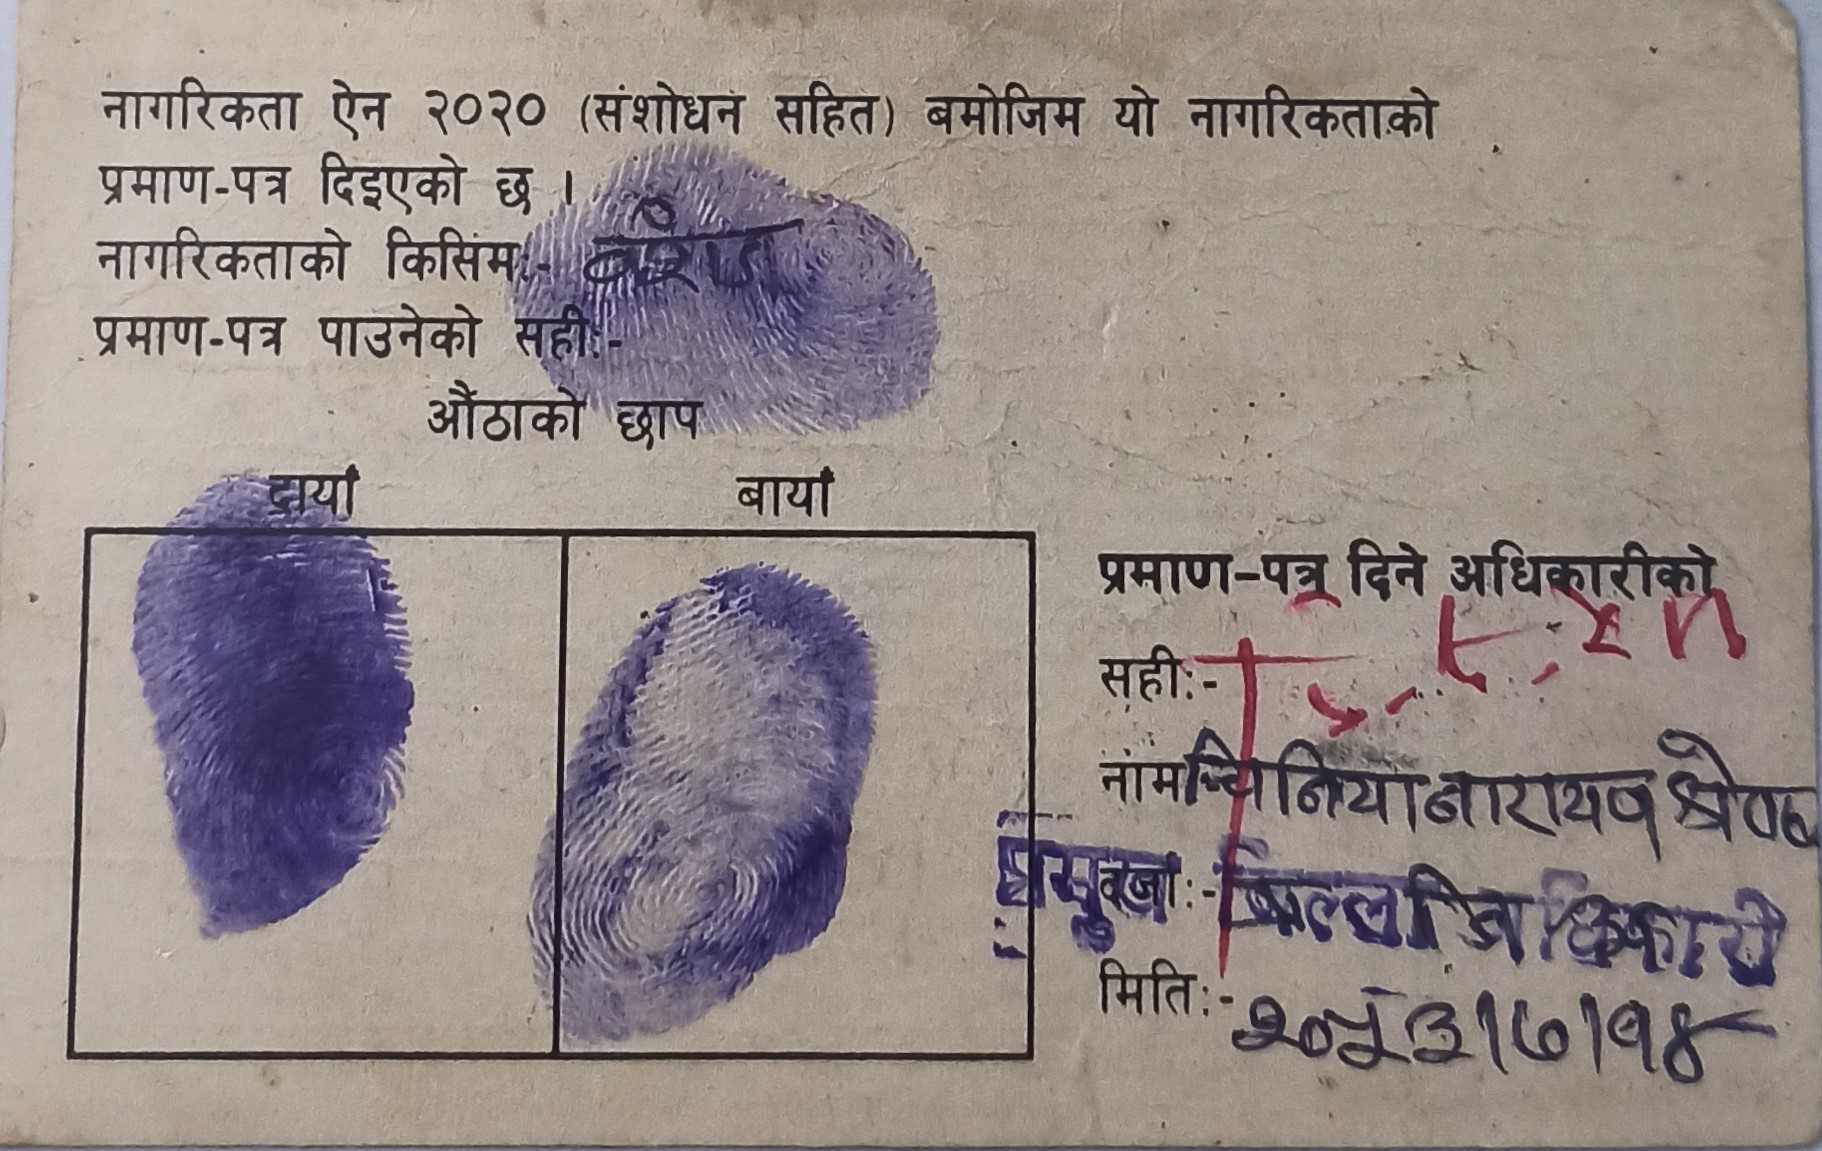 नागरिकता ऐन २०२० (संशोधन सहित) बमोजिम यो नागरिकताको
प्रमाण-पत्र दिइएको छ ।
नागरिकताको किसिम:- वंशज
प्रमाण-पत्र पाउनेको सही:-
औंठाको छाप
दायाँ बायाँ
प्रमाण-पत्र दिने अधिकारीको
सही:-
नाम नारायण श्रेष्ठ
दर्जा:-
मिति:- २०५३।७।१४